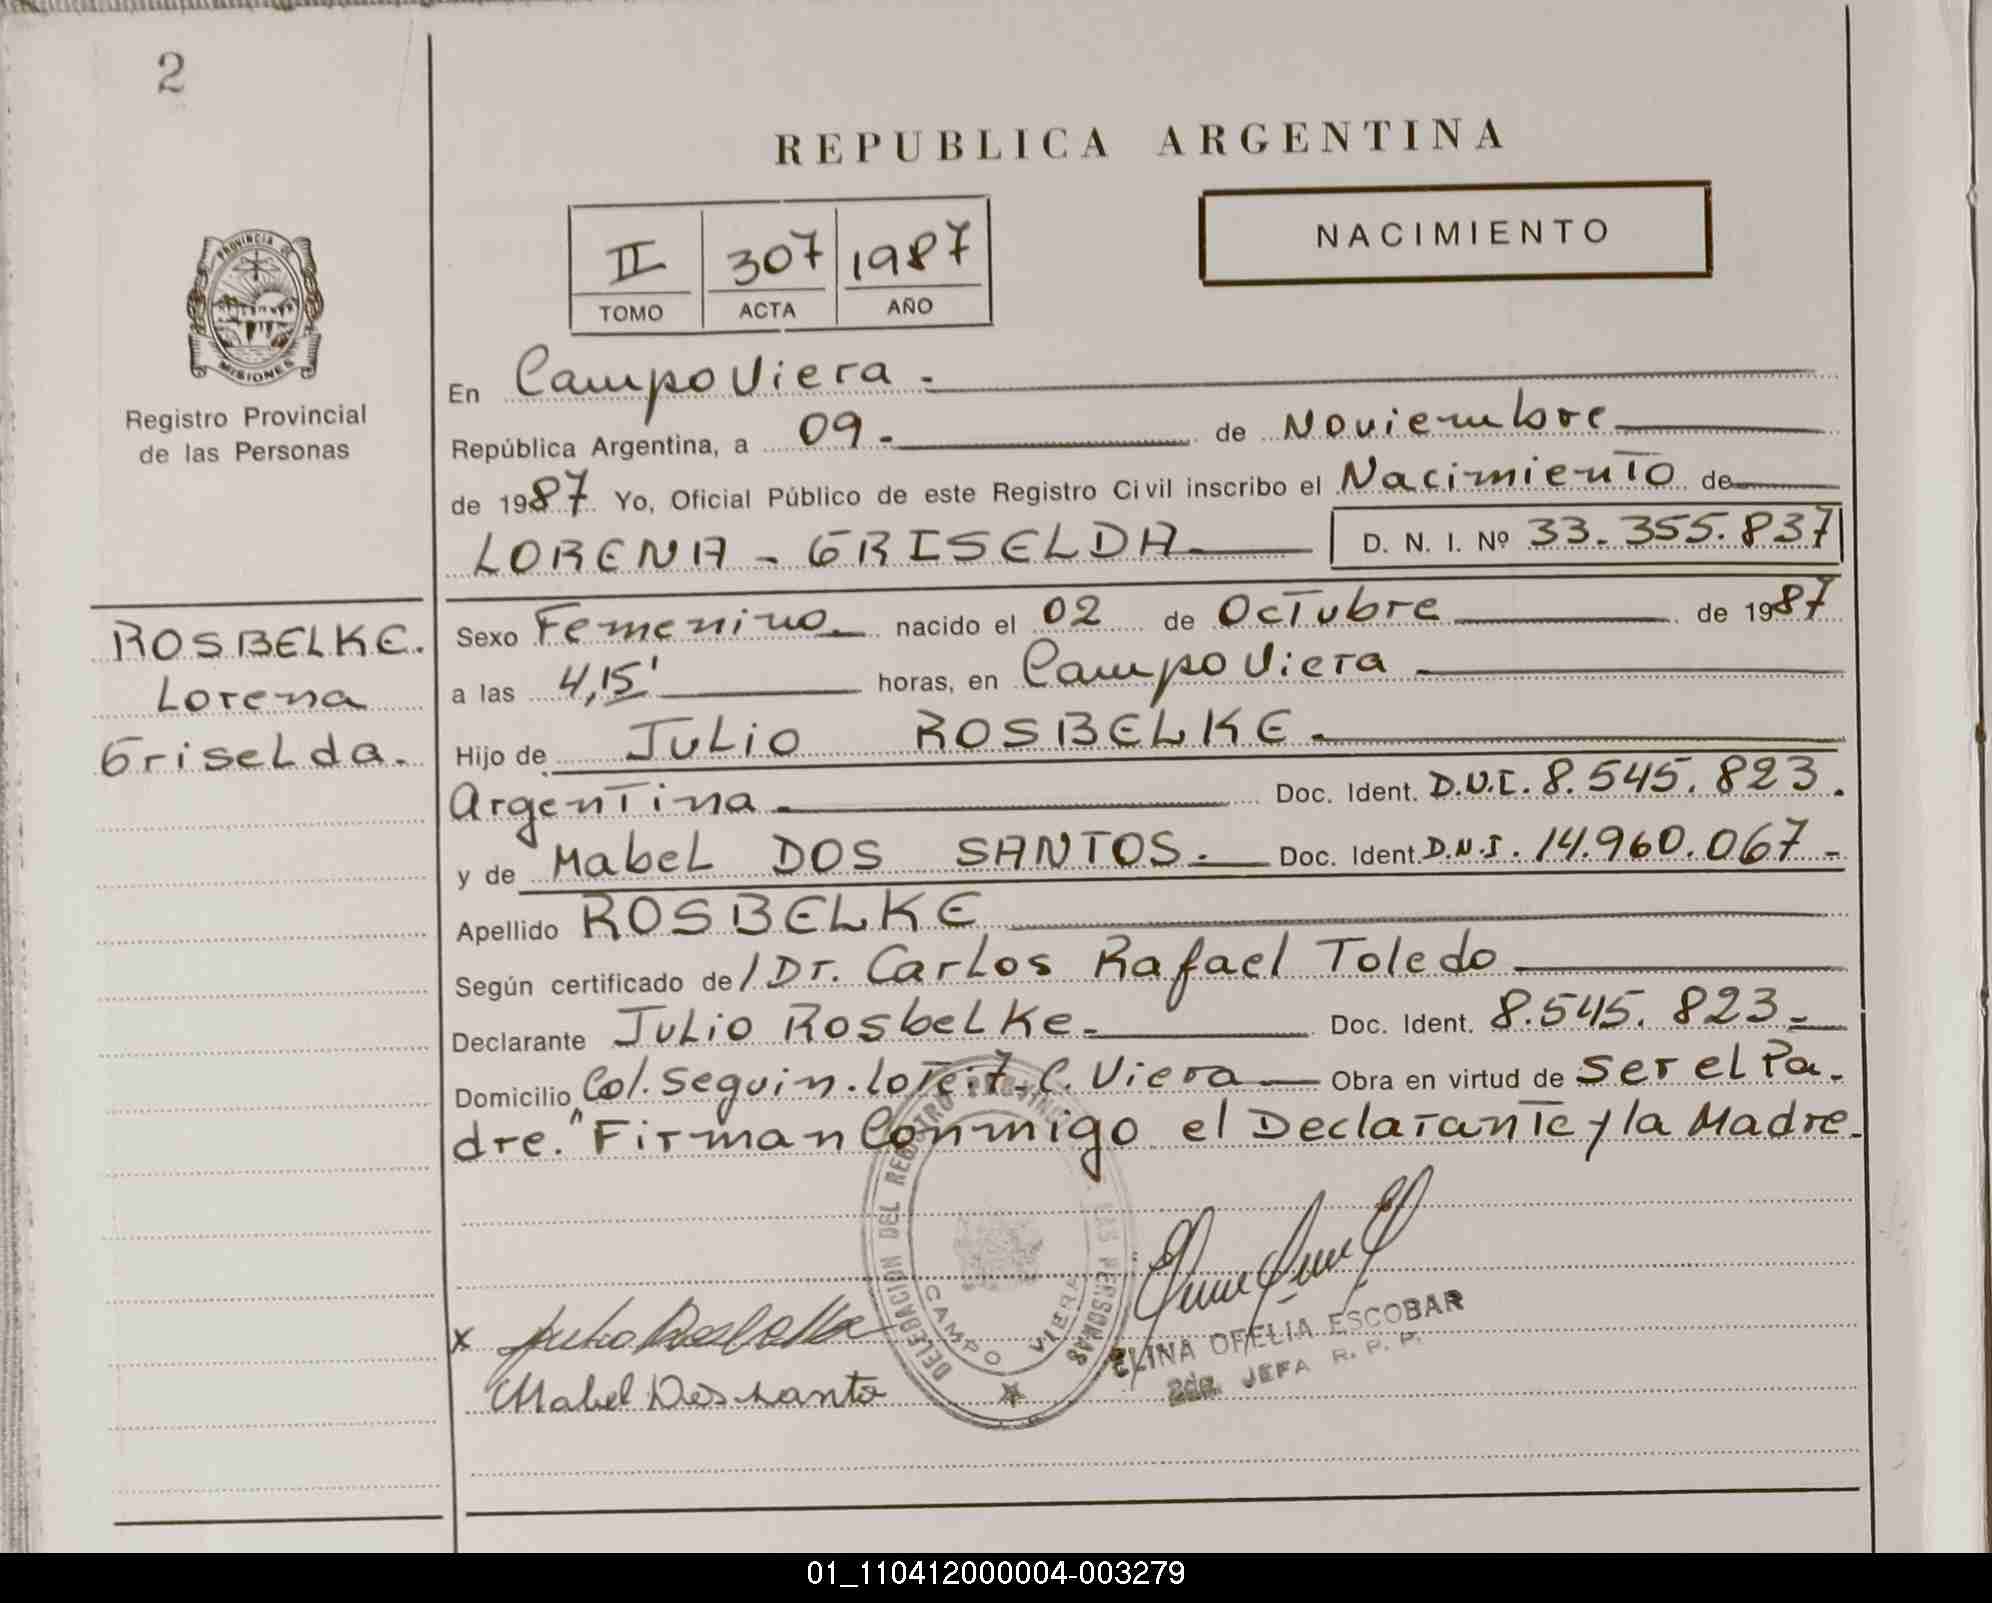 2
REPUBLICA ARGENTINA
NACIMIENTO
II 307 1987
TOMO ACTA AÑO
PROVINCIA DE
MISIONES
Registro Provincial
de las Personas
ROSBELKE.
Lorena
Griselda.
En Campo Viera.
República Argentina, a 09. de Noviembre
de 1987 Yo, Oficial Público de este Registro Civil inscribo el Nacimiento de
LORENA - GRISELDA D. N. I. Nº 33.355.837
Sexo Femenino. nacido el 02 de Octubre de 1987
a las 4,15' horas, en Campo Viera
Hijo de Julio ROSBELKE.
Argentina. Doc. Ident. D.N.I. 8.545.823.
y de Mabel DOS SANTOS. Doc. Ident. D.N.I. 14.960.067-
Apellido ROSBELKE
Según certificado de / Dr. Carlos Rafael Toledo
Declarante Julio Rosbelke. Doc. Ident. 8.545.823-
Domicilio Col. Seguin. lote. 7. C. Viera Obra en virtud de Ser el Pa-
dre." Firman Conmigo el Declarante y la Madre.
DELEGACION DEL REGISTRO PROVINCIAL DE LAS PERSONAS
CAMPO VIERA
x Julio Rosbelke
Mabel Dos santo
ELINA OFELIA ESCOBAR
2da. JEFA R. P. P.
01_110412000004-003279